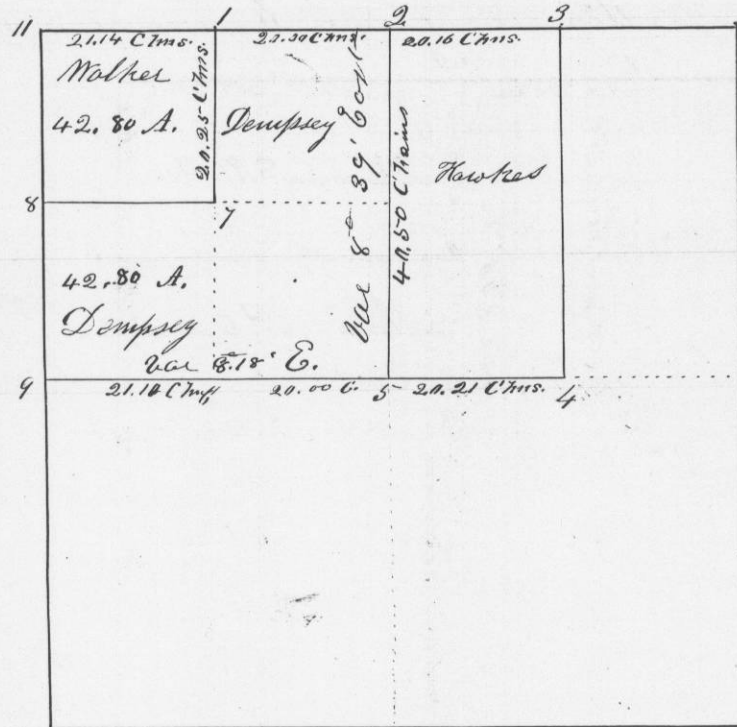 11 1 2 3
21.14 Chns. 20.00 Chns. 20.16 Chns.
Walker
42.80 A.
20.25 Chns.
Dempsey
Var 8° 39' East
40.50 Chains
Hawkes
8 7
42.80 A.
Dempsey
Var 8.18' E.
9 5 4
21.18 Chns 20.00 C. 20.21 Chns.